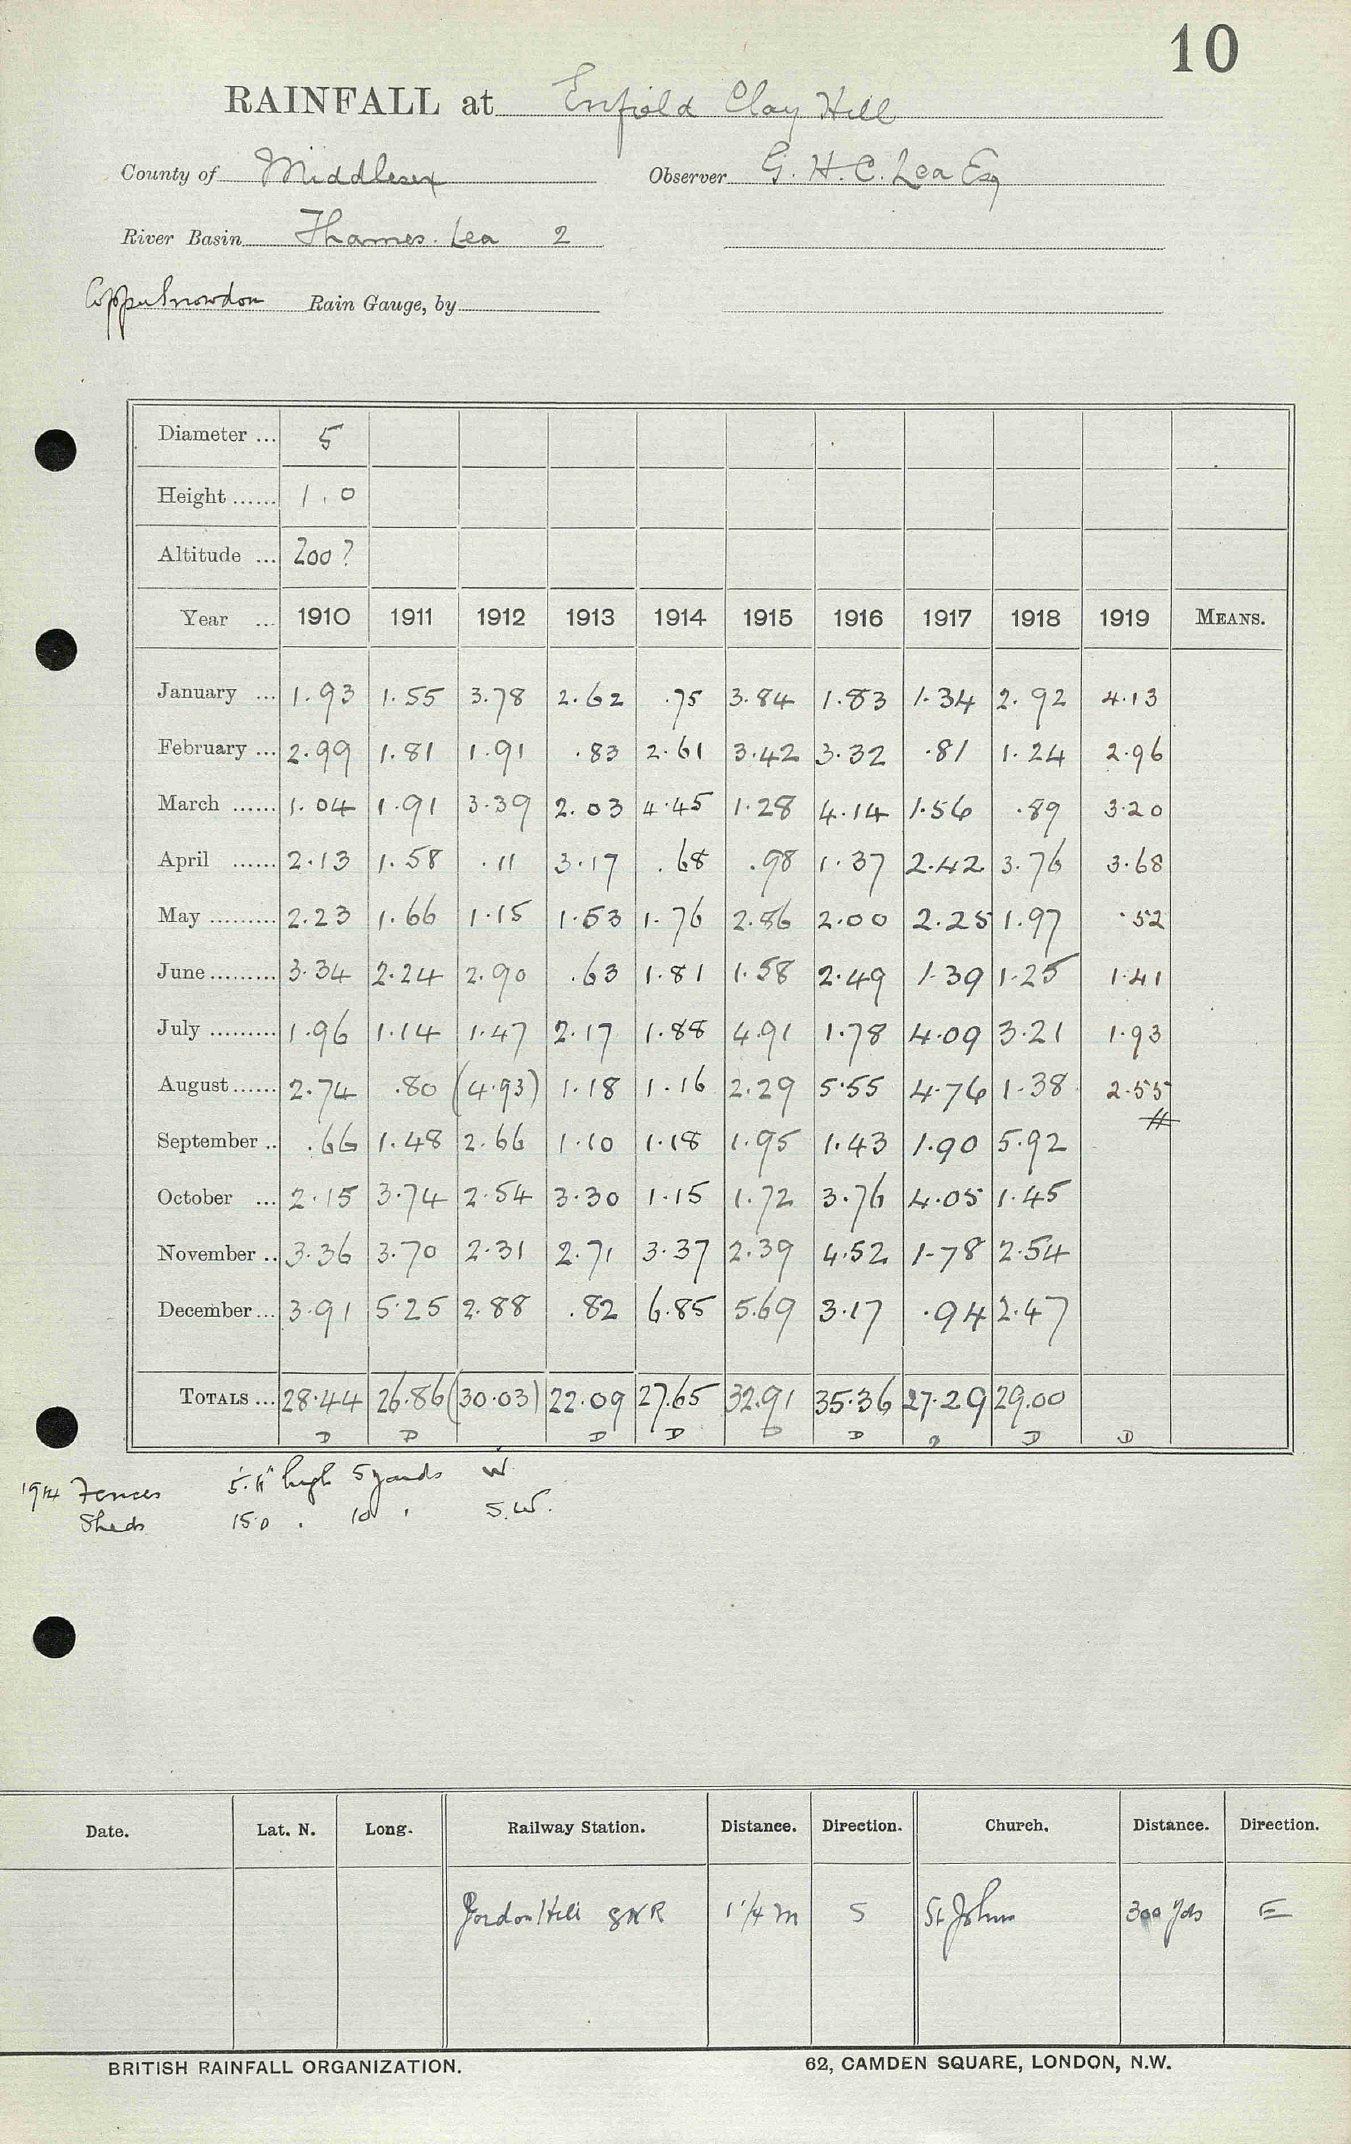 10
RAINFALL at Enfield Clay Hill
County of Middlesex Observer G. H. C. Lea Esq
River Basin Thames. Lea 2
Copper Snowdon Rain Gauge, by
Diameter ... 5
Height ...... 1.0
Altitude ... 200?
Year ... 1910 1911 1912 1913 1914 1915 1916 1917 1918 1919 MEANS.
January ... 1.93 1.55 3.78 2.62 .75 3.84 1.83 1.34 2.92 4.13
February ... 2.99 1.81 1.91 .83 2.61 3.42 3.32 .81 1.24 2.96
March ...... 1.04 1.91 3.39 2.03 4.45 1.28 4.14 1.56 .89 3.20
April ...... 2.13 1.58 .11 3.17 .68 .98 1.37 2.42 3.76 3.68
May ......... 2.23 1.66 1.15 1.53 1.76 2.86 2.00 2.25 1.97 .52
June ......... 3.34 2.24 2.90 .63 1.81 1.58 2.49 1.39 1.25 1.41
July ......... 1.96 1.14 1.47 2.17 1.88 4.91 1.78 4.09 3.21 1.93
August ...... 2.74 .80 (4.93) 1.18 1.16 2.29 5.55 4.76 1.38 2.55
September .. .66 1.48 2.66 1.10 1.18 1.95 1.43 1.90 5.92
October ... 2.15 3.74 2.54 3.30 1.15 1.72 3.76 4.05 1.45
November .. 3.36 3.70 2.31 2.71 3.37 2.39 4.52 1.78 2.54
December ... 3.91 5.25 2.88 .82 6.85 5.69 3.17 .94 2.47
TOTALS ... 28.44 26.86 (30.03) 22.09 27.65 32.91 35.36 27.29 29.00
D D D D D D D D
1914 Fences 5.4" high 5 yards W
Sheds 15.0 . 10 ' S.W.
Date. Lat. N. Long. Railway Station. Distance. Direction. Church. Distance. Direction.
Gordon Hill GNR 1 1/4 m S St Johns 300 Yds E
BRITISH RAINFALL ORGANIZATION. 62, CAMDEN SQUARE, LONDON, N.W.